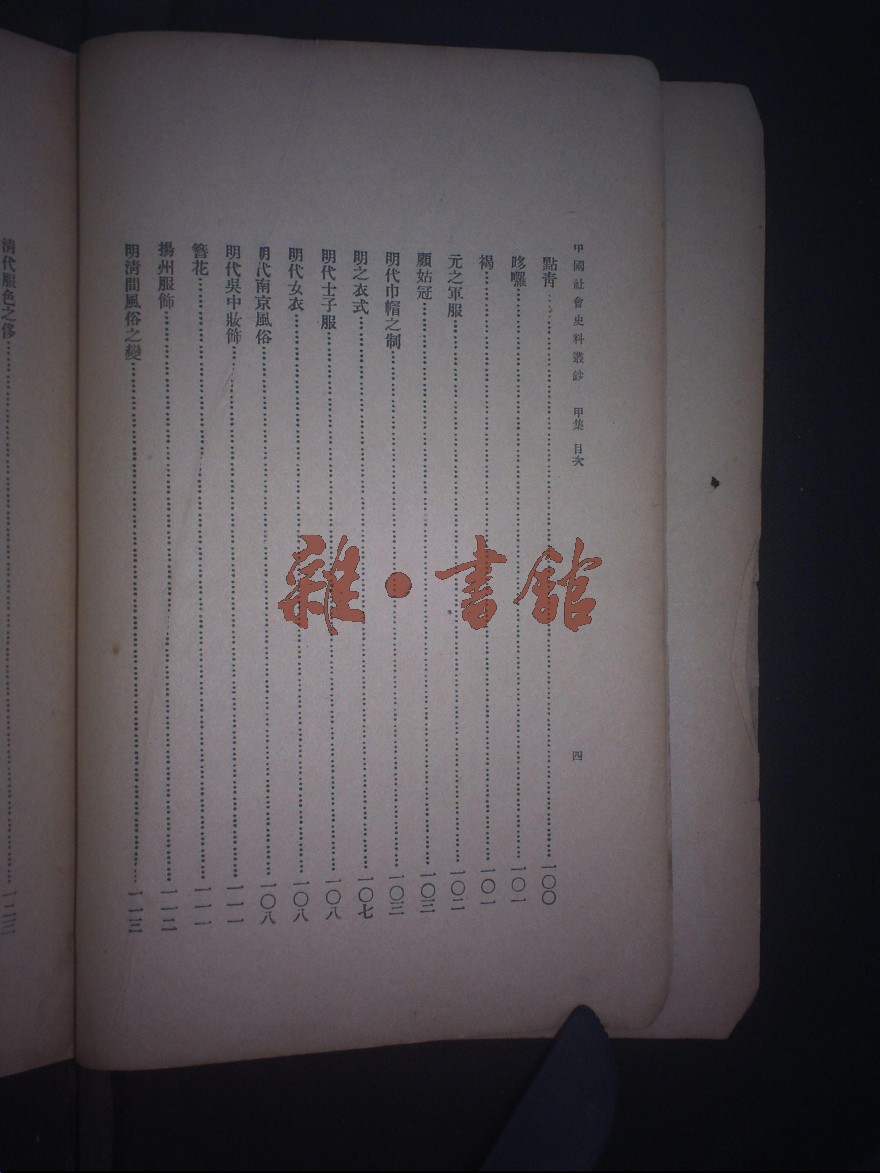 中國社會史料叢鈔 甲集 目次 四
點青……一〇〇
哆囉……一〇一
褐……一〇一
元之軍服……一〇二
顧姑冠……一〇三
明代巾帽之制……一〇三
明之衣式……一〇七
明代士子服……一〇八
明代女衣……一〇八
明代南京風俗……一〇八
明代吳中妝飾……一一一
簪花……一一一
揚州服飾……一一二
明清間風俗之變……一一三
清代服色之侈……一一三
雜·書館